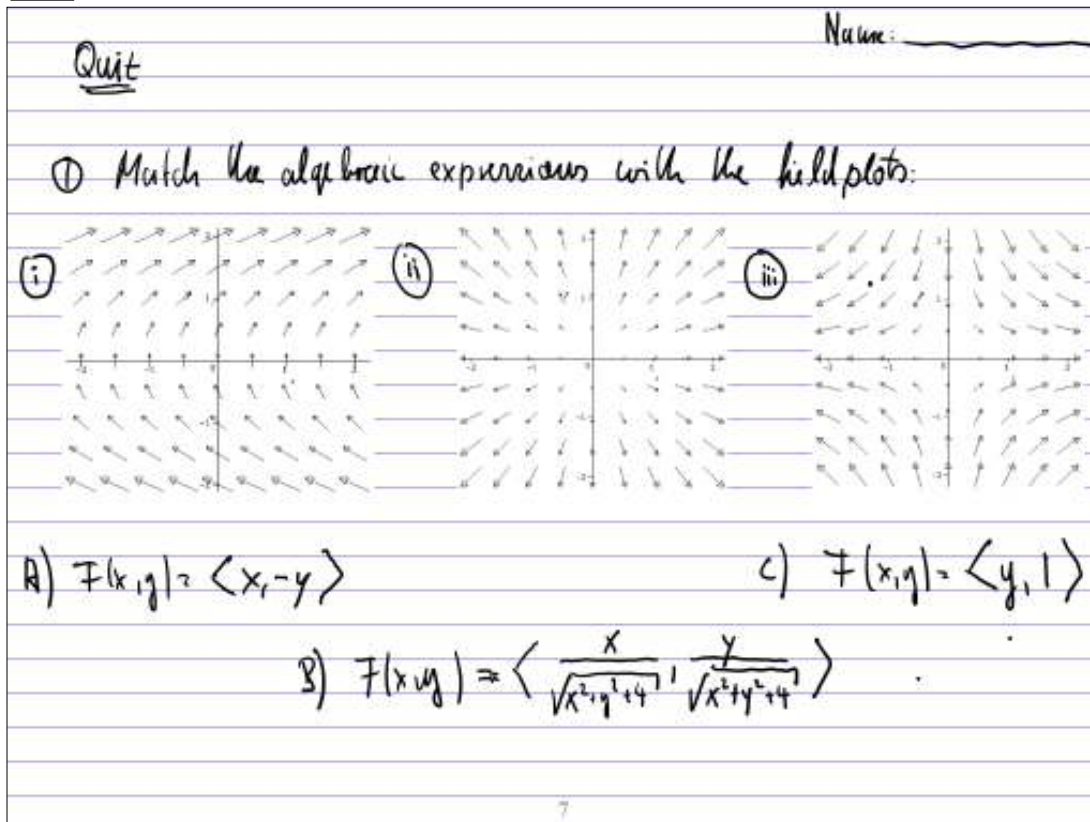 Name:
Quiz
① Match the algebraic expressions with the fieldplots:
i ii iii
A) F(x,y) = ⟨x,-y⟩ C) F(x,y) = ⟨y, 1⟩
B) F(x,y) = ⟨ x/√(x²+y²+4) , y/√(x²+y²+4) ⟩
7